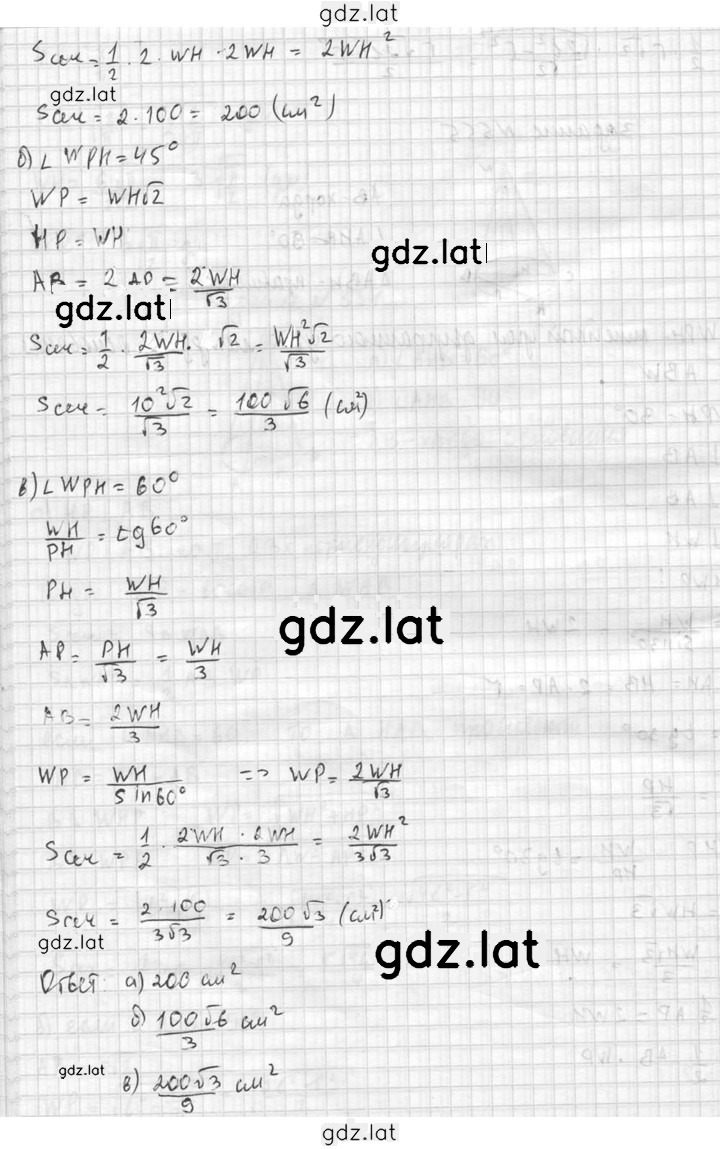 gdz.lat
Sсеч = 1/2 · 2 · WH · 2WH = 2WH²
gdz.lat
Sсеч = 2 · 100 = 200 (см²)
б) ∠ WPH = 45°
WP = WH√2
HP = WH
gdz.lat
AB = 2 AP = 2WH/√3
gdz.lat
Sсеч = 1/2 · 2WH/√3 · √2 = WH²√2/√3
Sсеч = 10²√2/√3 = 100√6/3 (см²)
в) ∠ WPH = 60°
WH/PH = tg60°
PH = WH/√3
gdz.lat
AP = PH/√3 = WH/3
AB = 2WH/3
WP = WH/sin60° => WP = 2WH/√3
Sсеч = 1/2 · 2WH · 2WH/√3 · 3 = 2WH²/3√3
Sсеч = 2 · 100/3√3 = 200√3/9 (см²)
gdz.lat
gdz.lat
Ответ: а) 200 см²
б) 100√6/3 см²
gdz.lat
в) 200√3/9 см²
gdz.lat